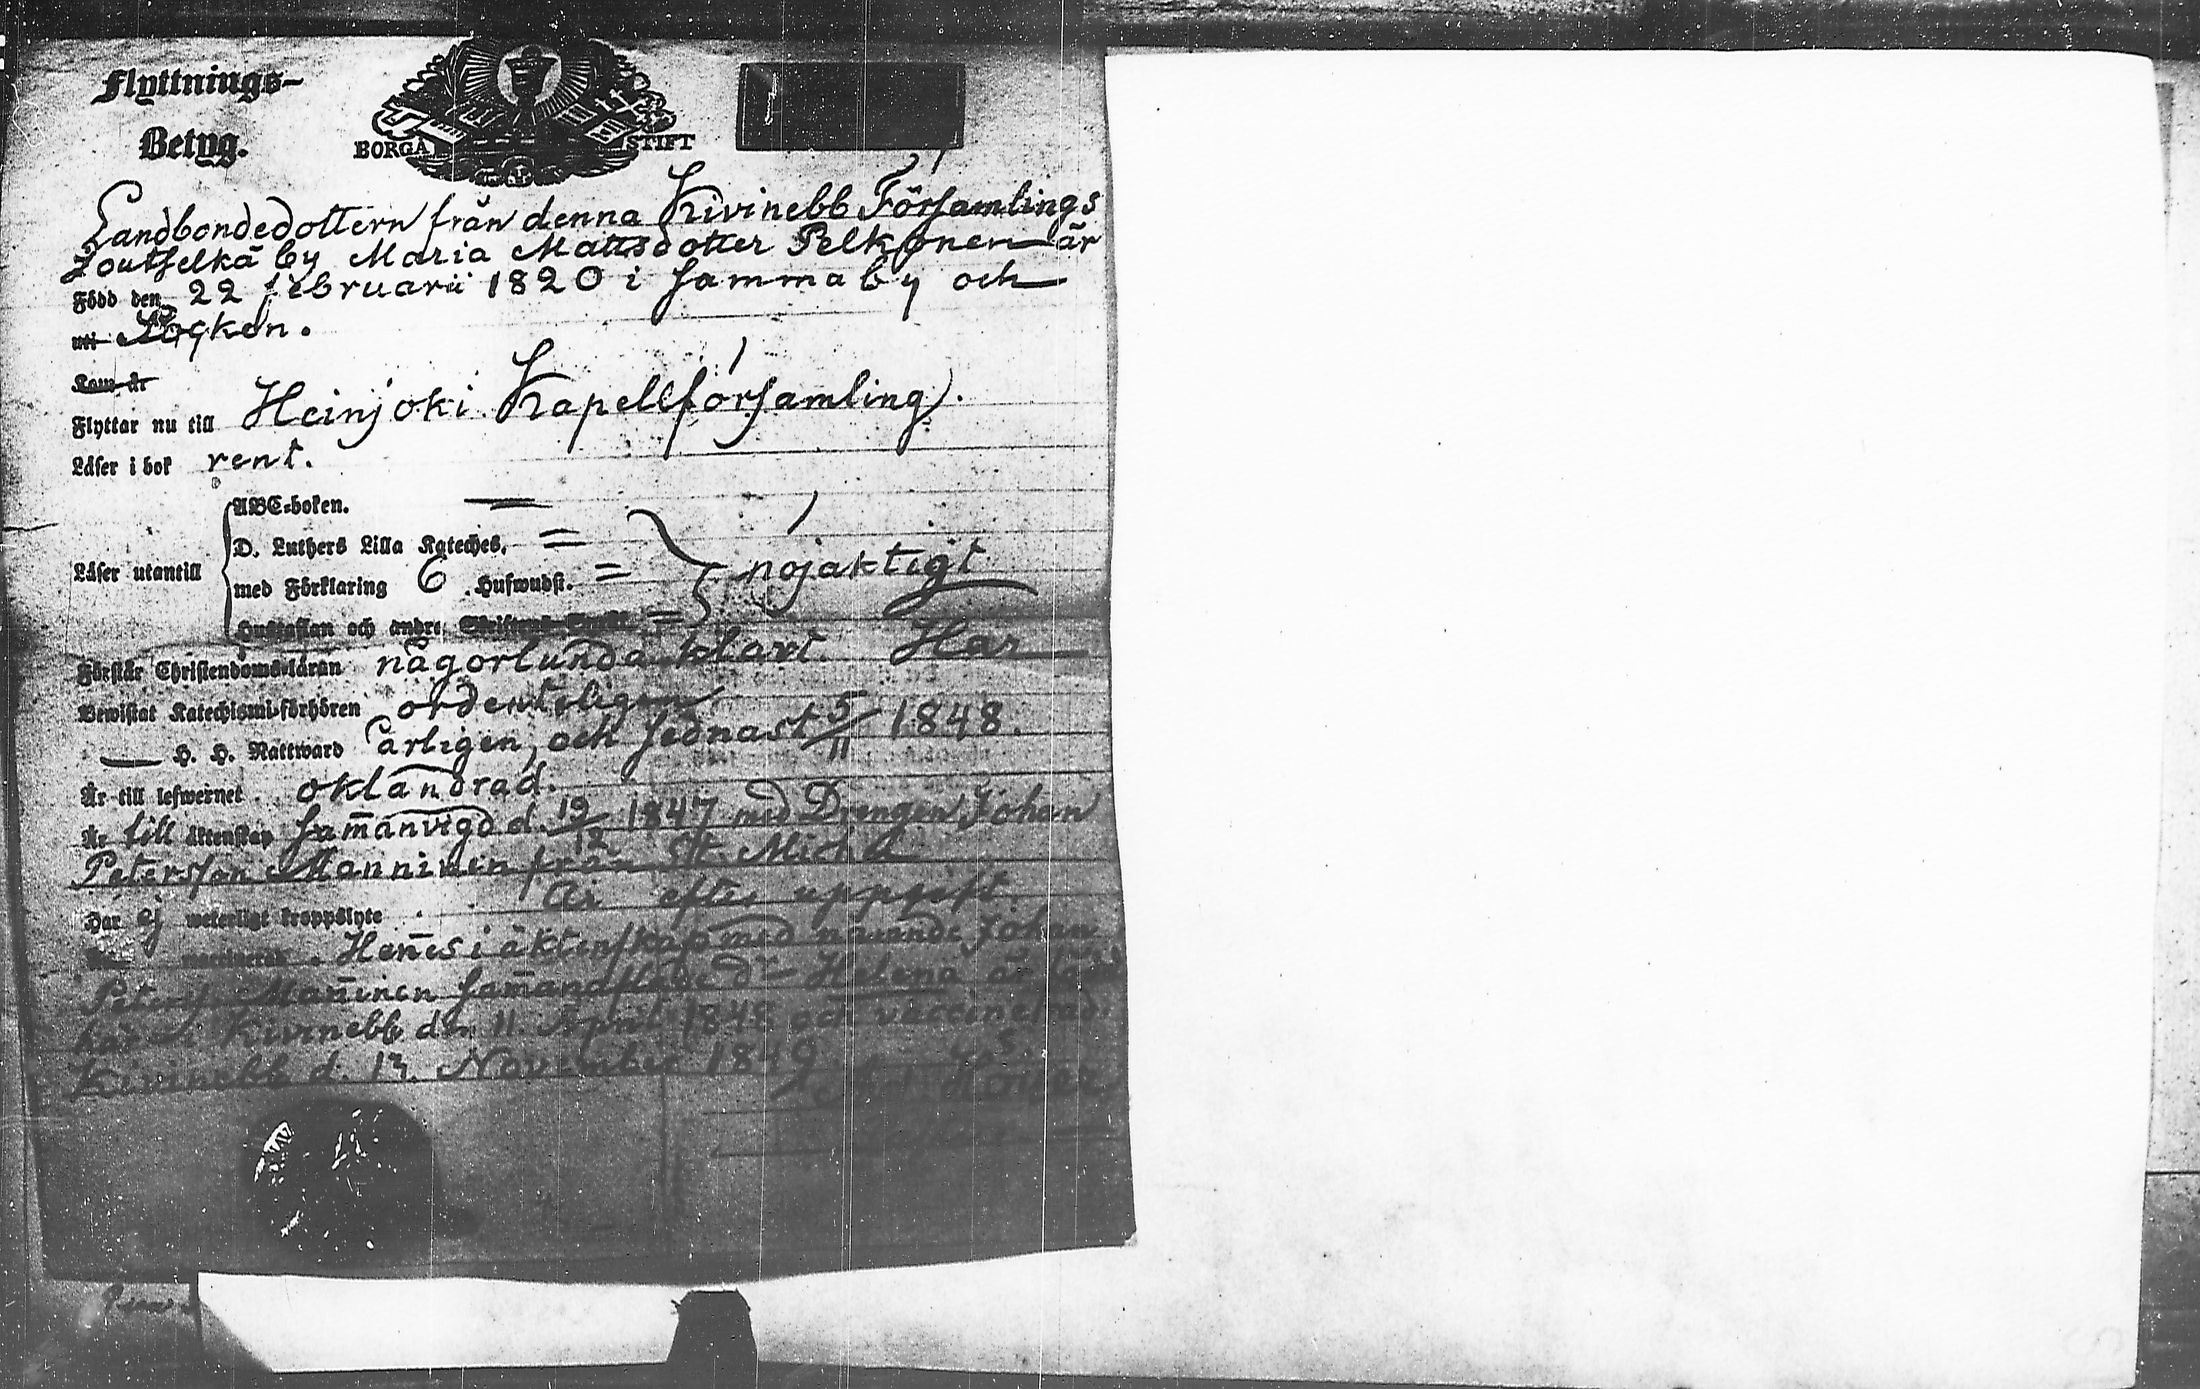 Flyttnings-
Betyg.
BORGÅ STIFT
Landbondedottern från denna Kivinebb Församlings
Joutselkä by Maria Mattsdotter Pelkonen är
Född den 22 februarii 1820 i samma by och
uti Socken.
Kom år
Flyttar nu till Heinjoki Kapellförsamling.
Läser i bok rent.
ABC-boken. =
D. Luthers Lilla Kateches. =
Läser utantill med Förklaring 6 Hufwudst. = nöjaktigt
Hustaflan och andre =
Förstår Christendoms-läran någorlunda klart. Har
Bewistat Katechismi-förhören ordenteligen
— H. H. Nattward årligen, och sednast 5/11 1848.
Är till lefwernet oklandrad.
Är till äktenskap sam̄anvigd d. 19/12 1847 med Drengen Johan
Petersson Manninen från St. Michel
Har ej weterligt kroppslyte. Är efter uppgift
Hen̄es i äktenskap med nämnde Johan
Peterss. Man̄inen sam̄anaflade dr Helena är född
här i Kivinebb den 11. April 1848 och vaccinerad.
Kivinebb d. November 1849